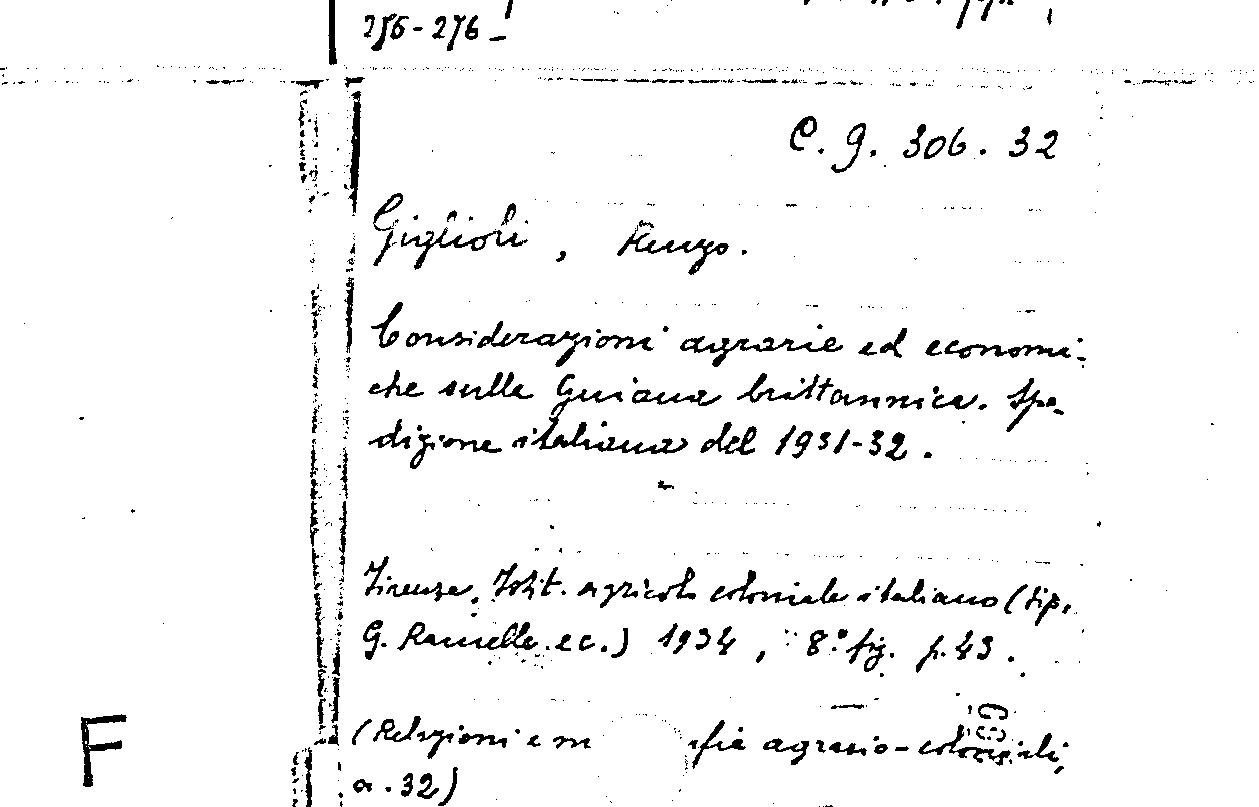 256-276
C. g. 306. 32
Giglioli, Renzo.
Considerazioni agrarie ed economi-
che sulle Guiana brittannica. Spe-
dizione italiana del 1931-32.
Firenze, Istit. agricolo coloniale italiano (tip.
G. Ramella e c.) 1934, 8.° fig. p. 43.
(Relazioni e m fie agrario-coloniali,
n. 32)
F